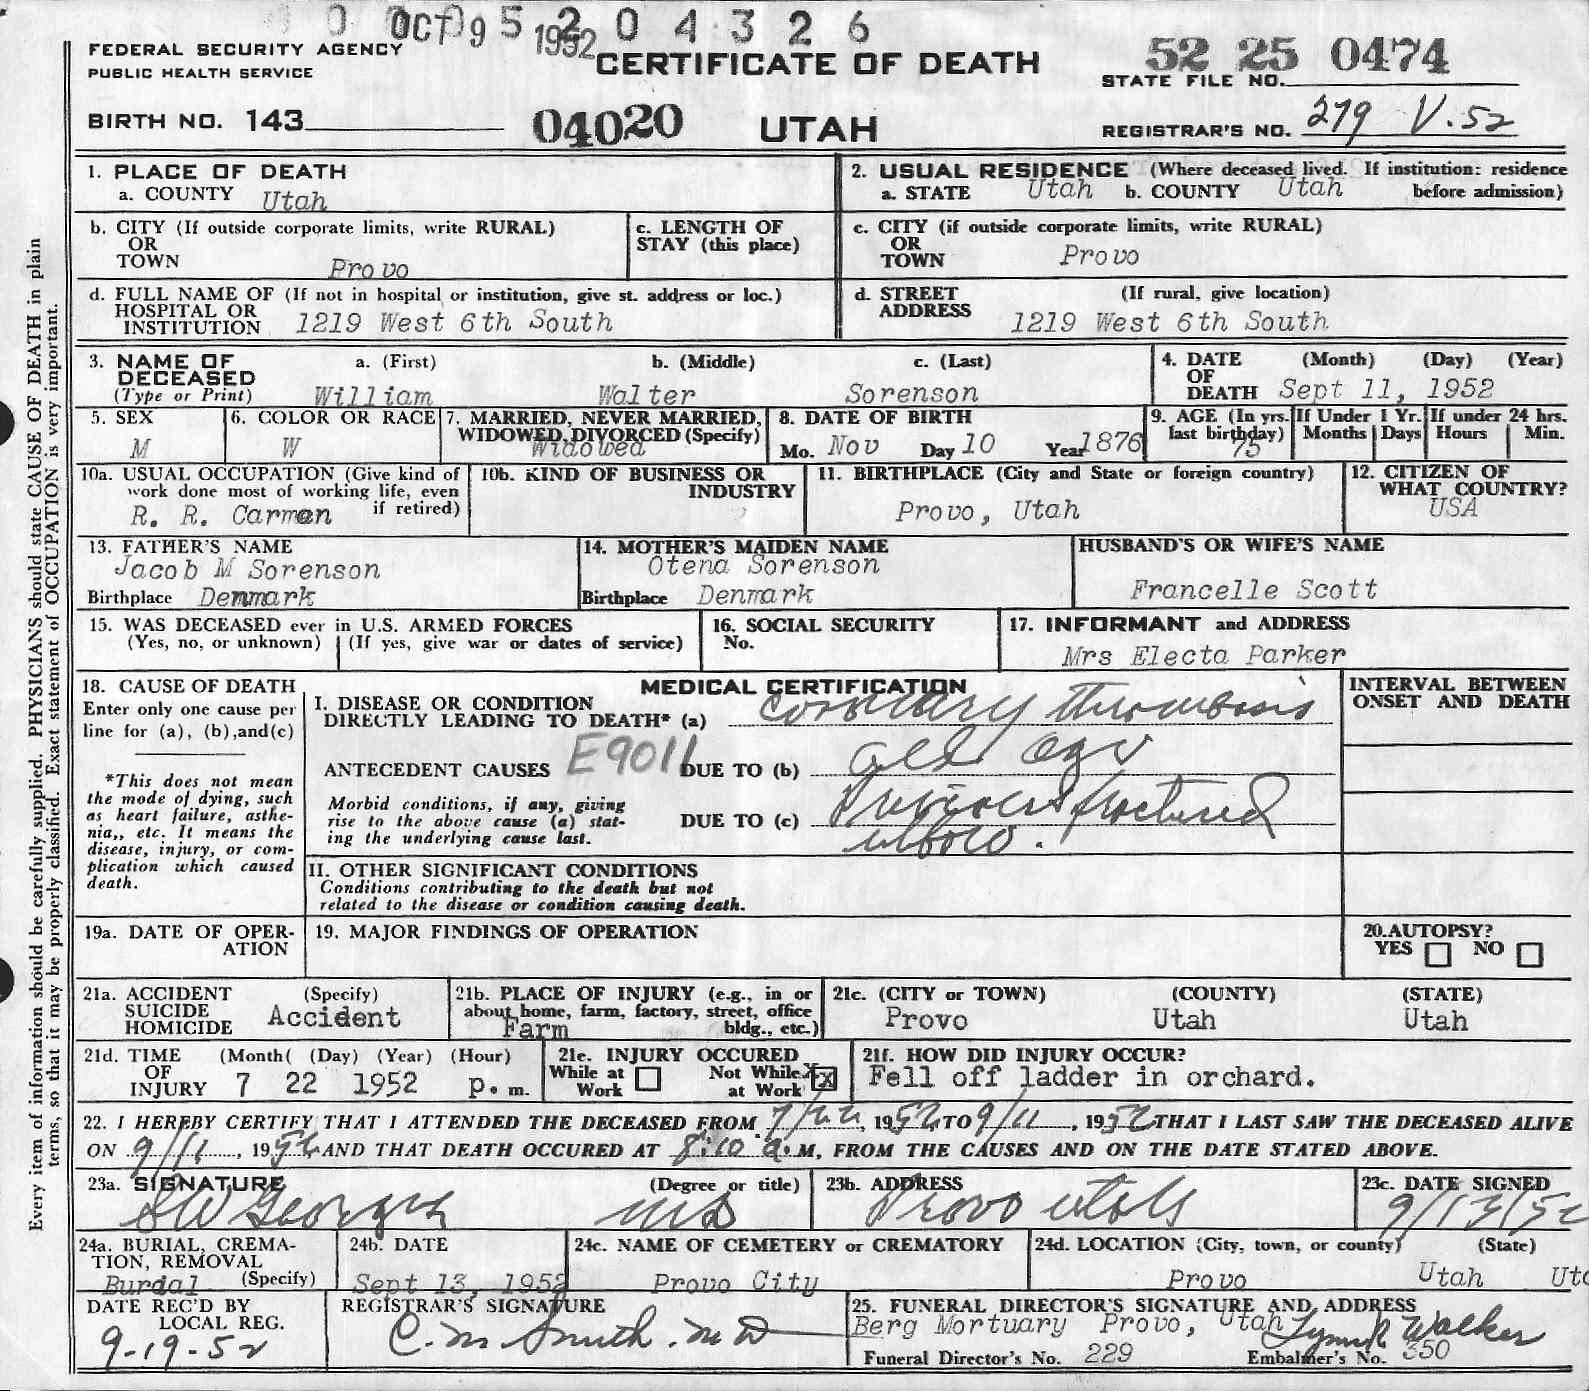 OCT 9 1952
0 9 5 2 0 4 3 2 6
FEDERAL SECURITY AGENCY
PUBLIC HEALTH SERVICE
CERTIFICATE OF DEATH
52 25 0474
STATE FILE NO.
BIRTH NO. 143
04020 UTAH
REGISTRAR'S NO. 279 V.52
1. PLACE OF DEATH
a. COUNTY Utah
2. USUAL RESIDENCE (Where deceased lived. If institution: residence
a. STATE Utah b. COUNTY Utah before admission)
b. CITY (If outside corporate limits, write RURAL)
OR
TOWN Provo
c. LENGTH OF
STAY (this place)
c. CITY (if outside corporate limits, write RURAL)
OR
TOWN Provo
d. FULL NAME OF (If not in hospital or institution, give st. address or loc.)
HOSPITAL OR
INSTITUTION 1219 West 6th South
d. STREET (If rural, give location)
ADDRESS 1219 West 6th South
3. NAME OF a. (First) b. (Middle) c. (Last)
DECEASED
(Type or Print) William Walter Sorenson
4. DATE (Month) (Day) (Year)
OF
DEATH Sept 11, 1952
5. SEX
M
6. COLOR OR RACE
W
7. MARRIED, NEVER MARRIED,
WIDOWED, DIVORCED (Specify)
Widowed
8. DATE OF BIRTH
Mo. Nov Day 10 Year 1876
9. AGE (In yrs.
last birthday)
75
If Under 1 Yr.
Months Days
If under 24 hrs.
Hours Min.
10a. USUAL OCCUPATION (Give kind of
work done most of working life, even
R. R. Carman if retired)
10b. KIND OF BUSINESS OR
INDUSTRY
11. BIRTHPLACE (City and State or foreign country)
Provo, Utah
12. CITIZEN OF
WHAT COUNTRY?
USA
13. FATHER'S NAME
Jacob M Sorenson
Birthplace Denmark
14. MOTHER'S MAIDEN NAME
Otena Sorenson
Birthplace Denmark
HUSBAND'S OR WIFE'S NAME
Francelle Scott
15. WAS DECEASED ever in U.S. ARMED FORCES
(Yes, no, or unknown) (If yes, give war or dates of service)
16. SOCIAL SECURITY
No.
17. INFORMANT and ADDRESS
Mrs Electa Parker
18. CAUSE OF DEATH
Enter only one cause per
line for (a), (b),and(c)
*This does not mean
the mode of dying, such
as heart failure, asthe-
nia,, etc. It means the
disease, injury, or com-
plication which caused
death.
MEDICAL CERTIFICATION
I. DISEASE OR CONDITION
DIRECTLY LEADING TO DEATH* (a) coronary thrombosis
ANTECEDENT CAUSES E9011 DUE TO (b) old age
Morbid conditions, if any, giving
rise to the above cause (a) stat-
ing the underlying cause last.
DUE TO (c) Previous fractured
elbow.
INTERVAL BETWEEN
ONSET AND DEATH
II. OTHER SIGNIFICANT CONDITIONS
Conditions contributing to the death but not
related to the disease or condition causing death.
19a. DATE OF OPER-
ATION
19. MAJOR FINDINGS OF OPERATION
20.AUTOPSY?
YES NO
21a. ACCIDENT (Specify)
SUICIDE
HOMICIDE Accident
21b. PLACE OF INJURY (e.g., in or
about home, farm, factory, street, office
Farm bldg., etc.)
21c. (CITY or TOWN) (COUNTY) (STATE)
Provo Utah Utah
21d. TIME (Month( (Day) (Year) (Hour)
OF
INJURY 7 22 1952 p. m.
21e. INJURY OCCURED
While at Not While x
Work at Work x
21f. HOW DID INJURY OCCUR?
Fell off ladder in orchard.
22. I HEREBY CERTIFY THAT I ATTENDED THE DECEASED FROM 7/22, 1952 TO 9/11, 1952 THAT I LAST SAW THE DECEASED ALIVE
ON 9/11, 1952 AND THAT DEATH OCCURED AT 8:10 a.M, FROM THE CAUSES AND ON THE DATE STATED ABOVE.
23a. SIGNATURE (Degree or title)
SW Georges MD
23b. ADDRESS
Provo Utah
23c. DATE SIGNED
9/13/52
24a. BURIAL, CREMA-
TION, REMOVAL
Burdal (Specify)
24b. DATE
Sept 13, 1952
24c. NAME OF CEMETERY or CREMATORY
Provo City
24d. LOCATION (City, town, or county) (State)
Provo Utah Uta
DATE REC'D BY
LOCAL REG.
9-19-52
REGISTRAR'S SIGNATURE
C. M Smith. M D
25. FUNERAL DIRECTOR'S SIGNATURE AND ADDRESS
Berg Mortuary Provo, Utah Lynn R Walker
Funeral Director's No. 229 Embalmer's No. 350
Every item of information should be carefully supplied. PHYSICIANS should state CAUSE OF DEATH in plain
terms, so that it may be properly classified. Exact statement of OCCUPATION is very important.